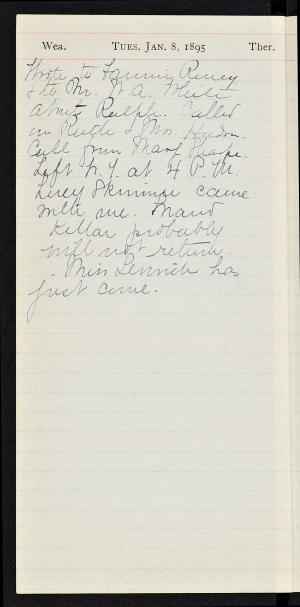 Wea. TUES. JAN. 8, 1895 Ther.
Wrote to Fannie
& to Mr. W. A. White
about Ralph. Called
on Ruth & Mrs.
Call from Mary Thorpe.
Left N. Y. at 4 P.M.
Lucy Skinner came
with me. Maud
Kellar probably
will not return.
Miss has
just come.